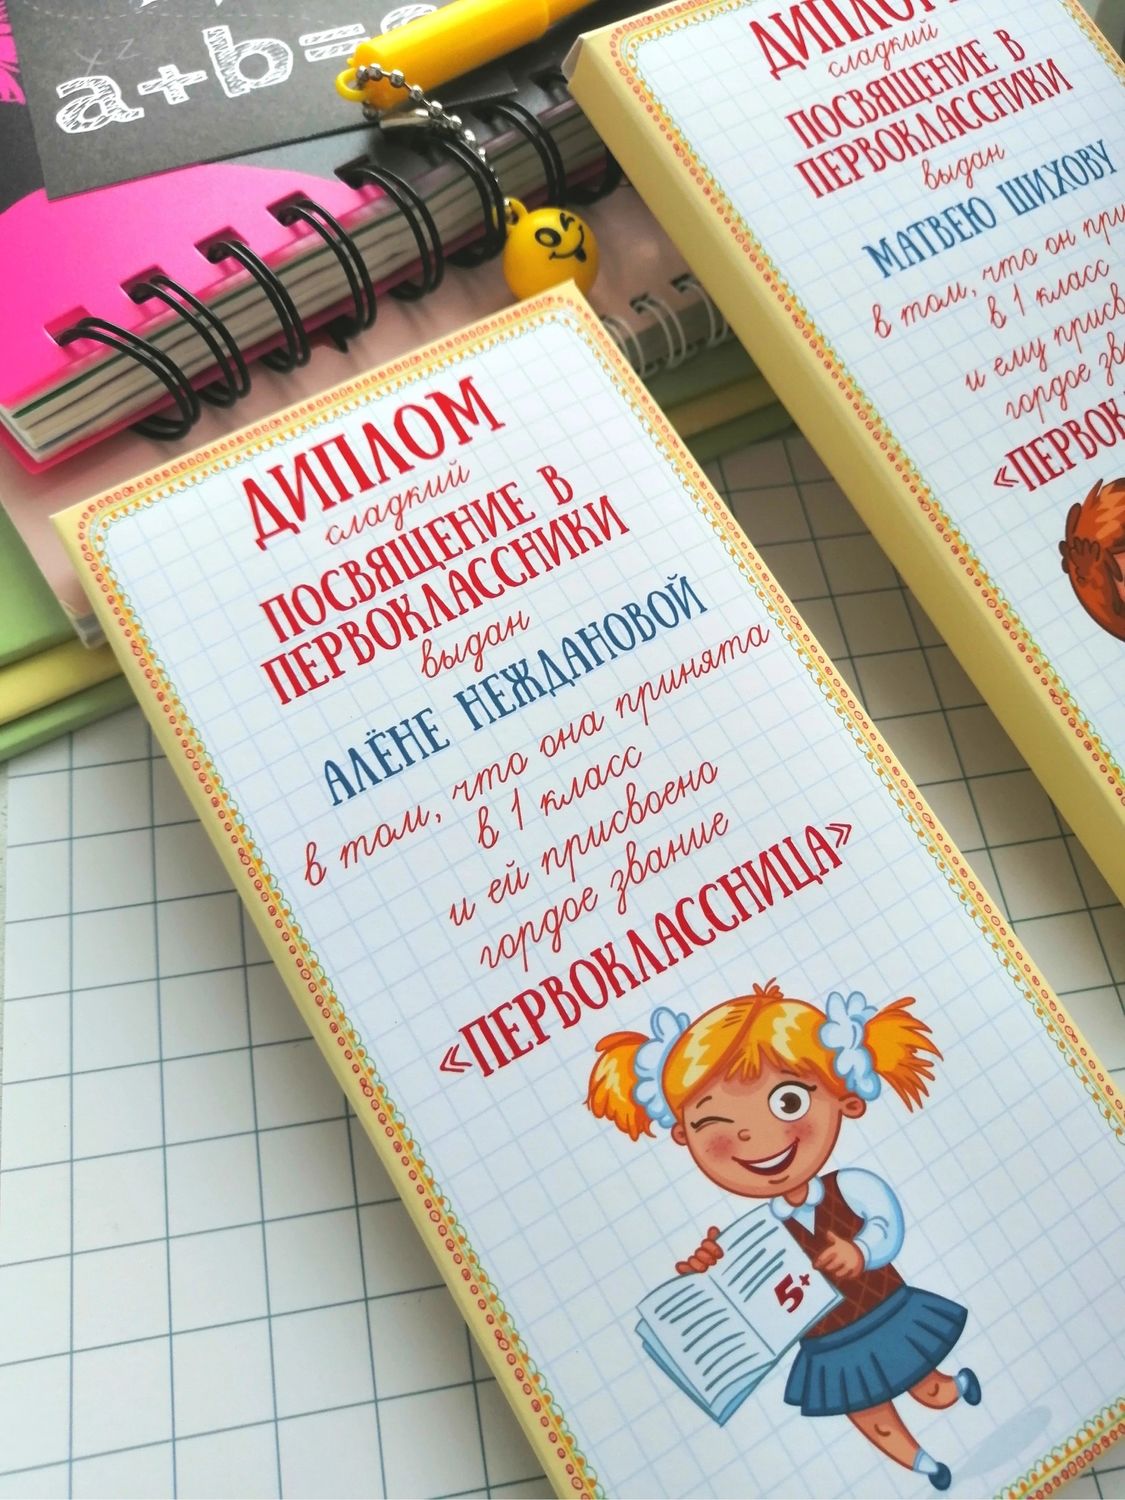 a+b=
ДИПЛОМ
сладкий
ПОСВЯЩЕНИЕ В
ПЕРВОКЛАССНИКИ
выдан
АЛЁНЕ НЕЖДАНОВОЙ
в том, что она принята
в 1 класс
и ей присвоено
гордое звание
«ПЕРВОКЛАССНИЦА»
5+
ДИПЛОМ
сладкий
ПОСВЯЩЕНИЕ В
ПЕРВОКЛАССНИКИ
выдан
МАТВЕЮ ШИХОВУ
в том, что он
в 1 класс
и ему
гордое